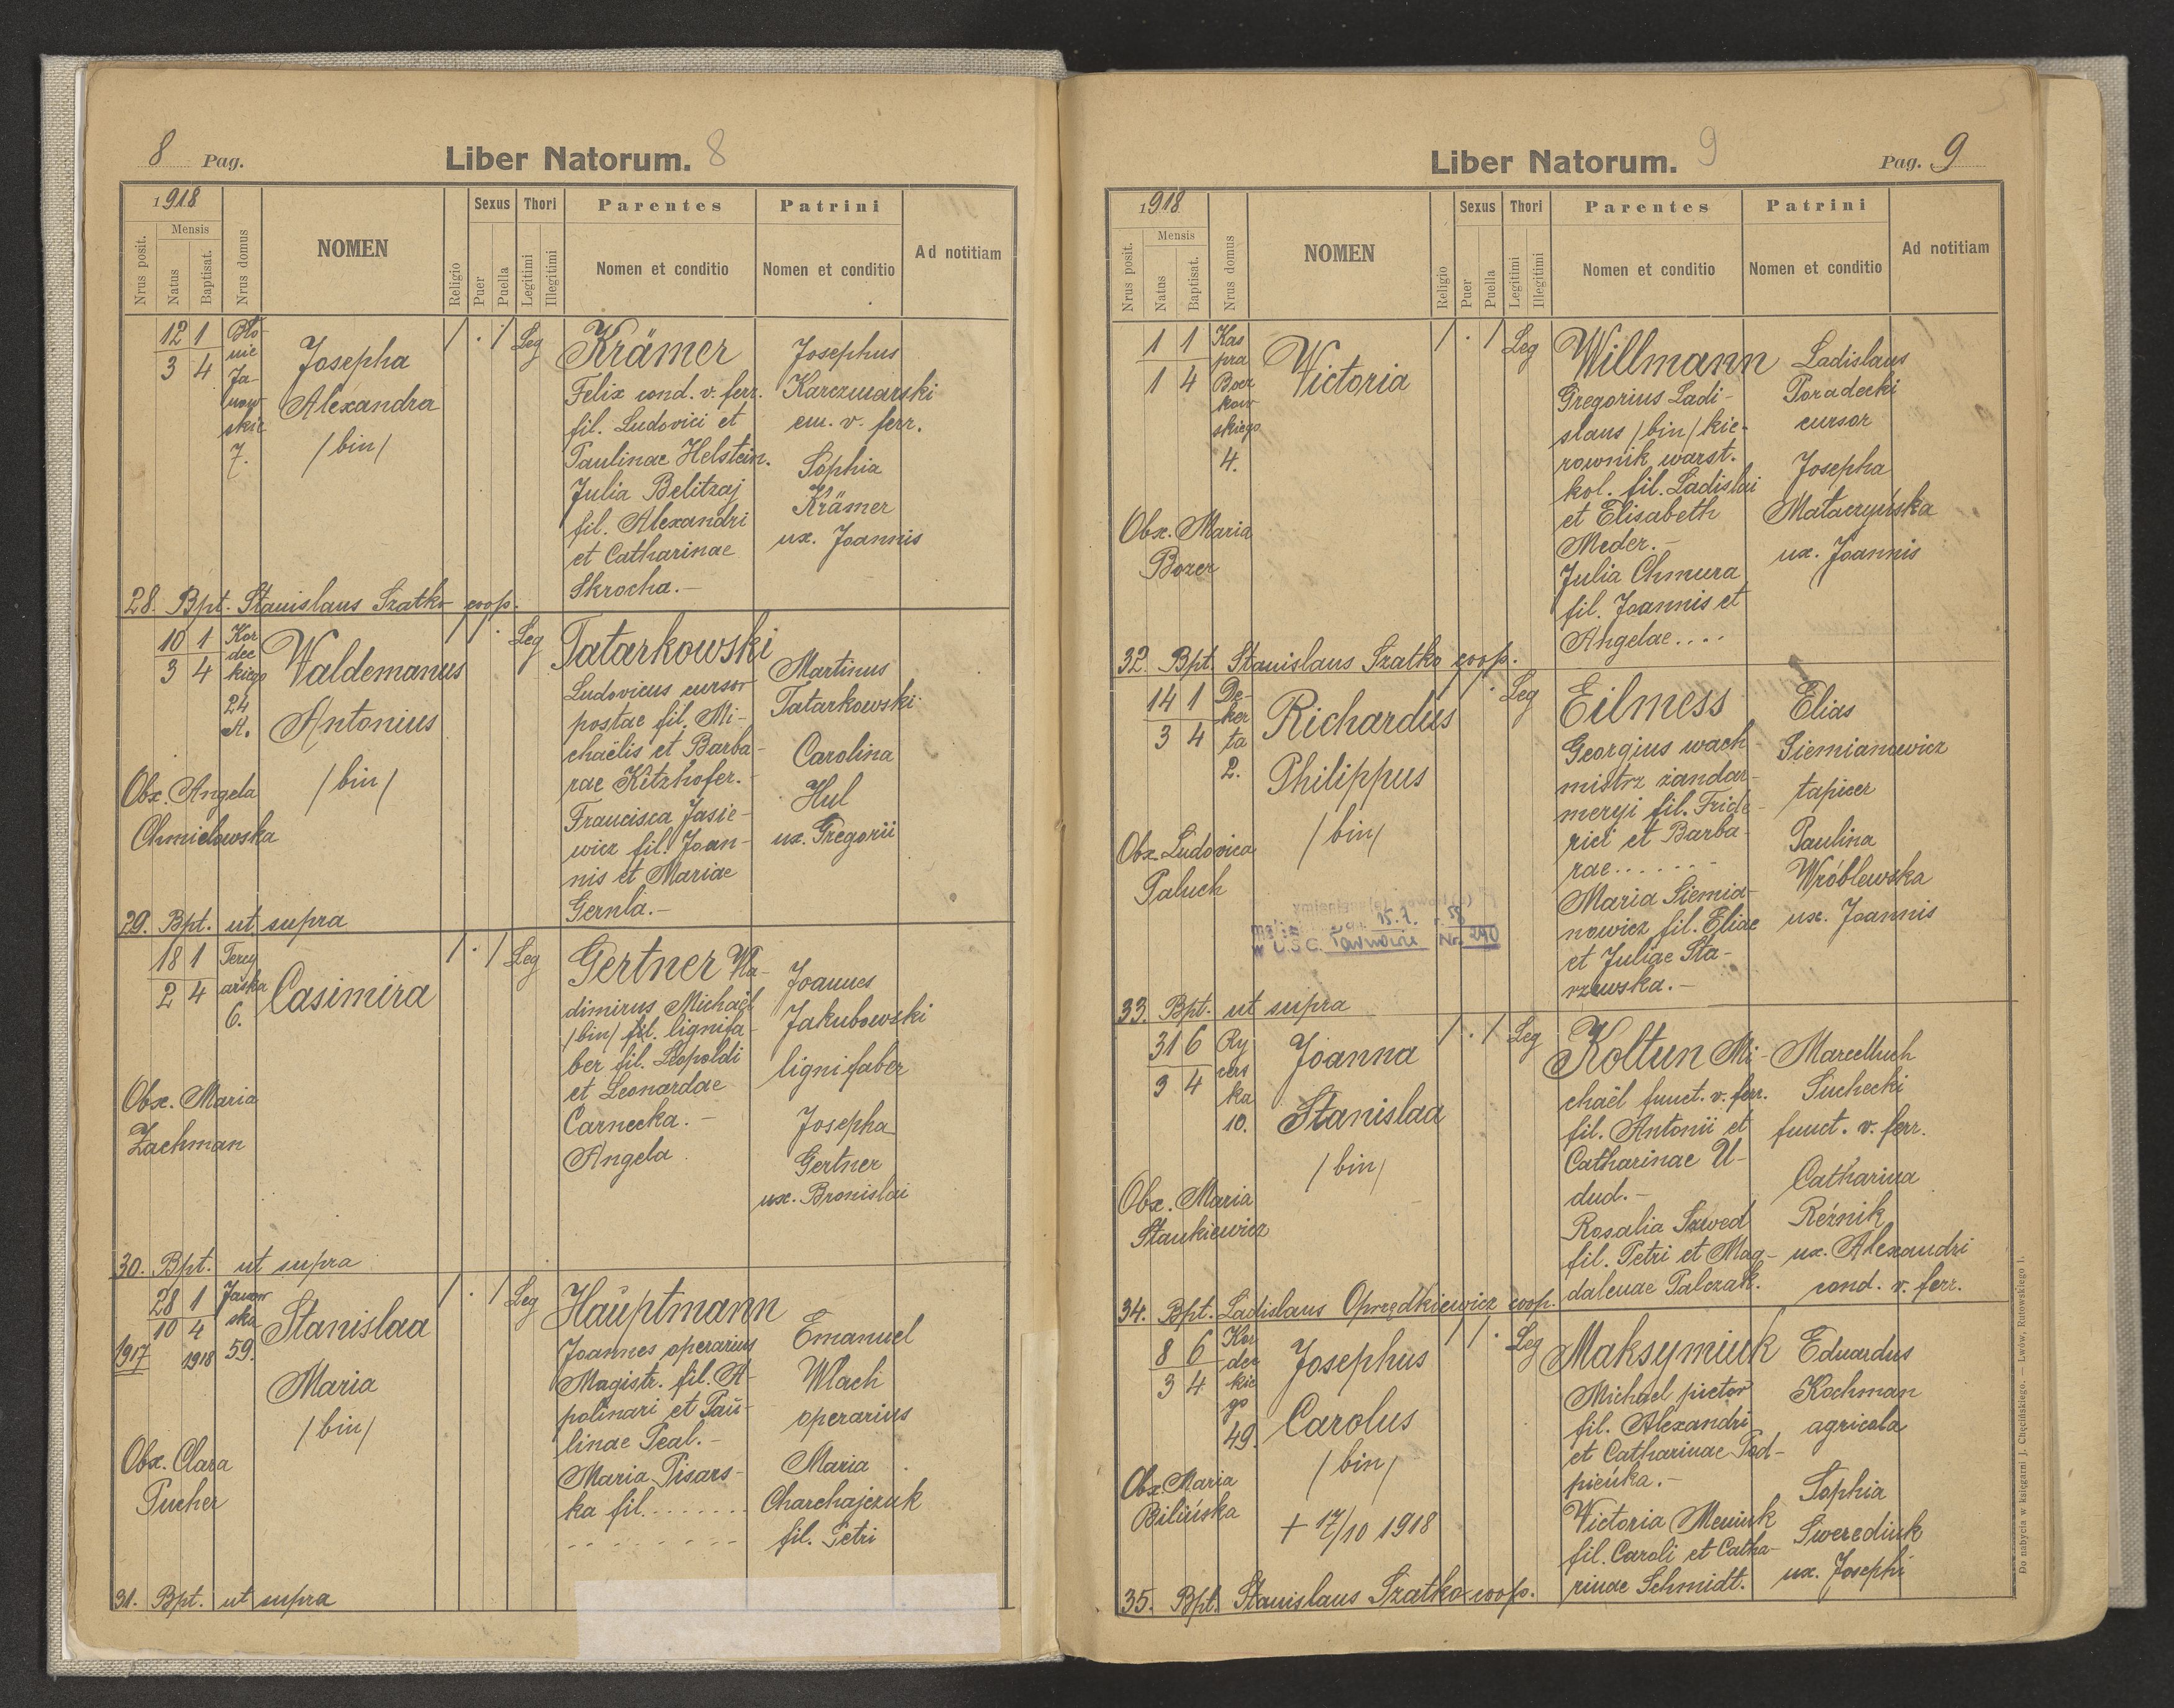 8 Pag.
Liber Natorum. 8
1918
Nrus posit.
Mensis
Natus
Baptisat.
Nrus domus
NOMEN
Religio
Sexus
Puer
Puella
Thori
Legitimi
Illegitimi
Parentes
Nomen et conditio
Patrini
Nomen et conditio
Ad notitiam
12 1
3 4
Bło-
nie
Ja-
now-
skie
7.
Josepha
Alexandra
/bin/
/ · / Leg
Krämer
Felix cond. v. ferr.
fil. Ludovici et
Paulinae Helstein.
Julia Belitzaj
fil. Alexandri
et Catharinae
Skrocha.-
Josephus
Karczmarski
em. v. ferr.
Sophia
Krämer
ux. Joannis
28. Bpt. Stanislaus Szatko coop.
10 1
3 4
Kor
dec
kiego
24
A.
Waldemanus
Antonius
/bin/
/ / · Leg
Obx. Angela
Chmielowska
Tatarkowski
Ludovicus cursor
postae fil. Mi-
chaëlis et Barba-
rae Kitzhofer.-
Francisca Jasie-
wicz fil. Joan-
nis et Mariae
Gernla.-
Martinus
Tatarkowski
Carolina
Hul
ux. Gregorii
29. Bpt. ut supra
18 1
2 4
Tercy
arska
6.
Casimira
/ · / Leg
Obx. Maria
Zachman
Gertner Wla-
dimirus Michaël
/bin/ fil. lignifa-
ber fil. Leopoldi
et Leonardae
Carnecka.-
Angela
Joannes
Jakubowski
lignifaber
Josepha
Gertner
ux. Bronislai
30. Bpt. ut supra
28 1
10 4
1917 1918
Janow
ska
59.
Stanislaa
Maria
/bin/
/ · / Leg
Obx. Clara
Pucher
Hauptmann
Joannes operarius
Magistr. fil. A-
polinari et Pau-
linae Peal.-
Maria Pisars-
ka fil. .......
........
Emanuel
Wlach
operarius
Maria
Charchajczuk
fil. Petri
31. Bpt. ut supra
Liber Natorum. 9
Pag. 9
1918
Nrus posit.
Mensis
Natus
Baptisat.
Nrus domus
NOMEN
Religio
Sexus
Puer
Puella
Thori
Legitimi
Illegitimi
Parentes
Nomen et conditio
Patrini
Nomen et conditio
Ad notitiam
1 1
1 4
Kas
pra
Bocz
kow
skiego
4.
Victoria
/ · / Leg
Obx. Maria
Bozer
Willmann
Gregorius Ladi-
slaus /bin/ kie-
rownik warst.
kol. fil. Ladislai
et Elisabeth
Meder.-
Julia Chmura
fil. Joannis et
Angelae....
Ladislaus
Poradecki
cursor
Josepha
Mataczyńska
ux. Joannis
32. Bpt. Stanislaus Szatko coop.
14 1
3 4
De-
ker
ta
2.
Richardus
Philippus
/bin/
/ / · Leg
Obx. Ludovica
Paluch
15.7. 58
w U.S.C. Tarnowie Nr. 290
Eilmess
Georgius wach
mistrz żandar-
meryi fil. Fride-
rici et Barba-
rae.......
Maria Siemia-
nowicz fil. Eliae
et Juliae Sta-
rzewska.-
Elias
Siemianowicz
tapicer
Paulina
Wróblewska
ux. Joannis
33. Bpt. ut supra
31 6
3 4
Ry
cers
ka
10.
Joanna
Stanislaa
/bin/
/ · / Leg
Obx. Maria
Stankiewicz
Kołtun Mi-
chaël funct. v. ferr.
fil. Antonii et
Catharinae U-
dud.-
Rosalia Szwed
fil. Petri et Mag-
dalenae Palczak.
Marcelluch
Suchecki
funct. v. ferr.
Catharina
Reźnik
ux. Alexandri
cond. v. ferr.
34. Bpt. Ladislaus Oprzędkiewicz coop.
8 6
3 4
Kor
dec
kie
go
49.
Josephus
Carolus
/bin/
+ 17/10 1918
/ / · Leg
Obx. Maria
Bilińska
Maksymiuk
Michael pictor
fil. Alexandri
et Catharinae Pod-
pieńka.-
Victoria Meniuk
fil. Caroli et Catha-
rinae Schmidt.
Eduardus
Kochman
agricola
Sophia
Swerediuk
ux. Josephi
35. Bpt. Stanislaus Szatko coop.
Do nabycia w księgarni J. Chęcińskiego. — Lwów, Rutowskiego 1.